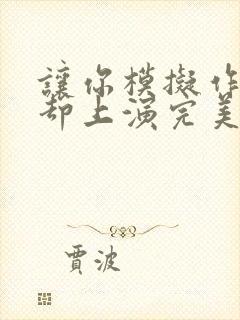 讓你模擬作
却上演完美
賈波